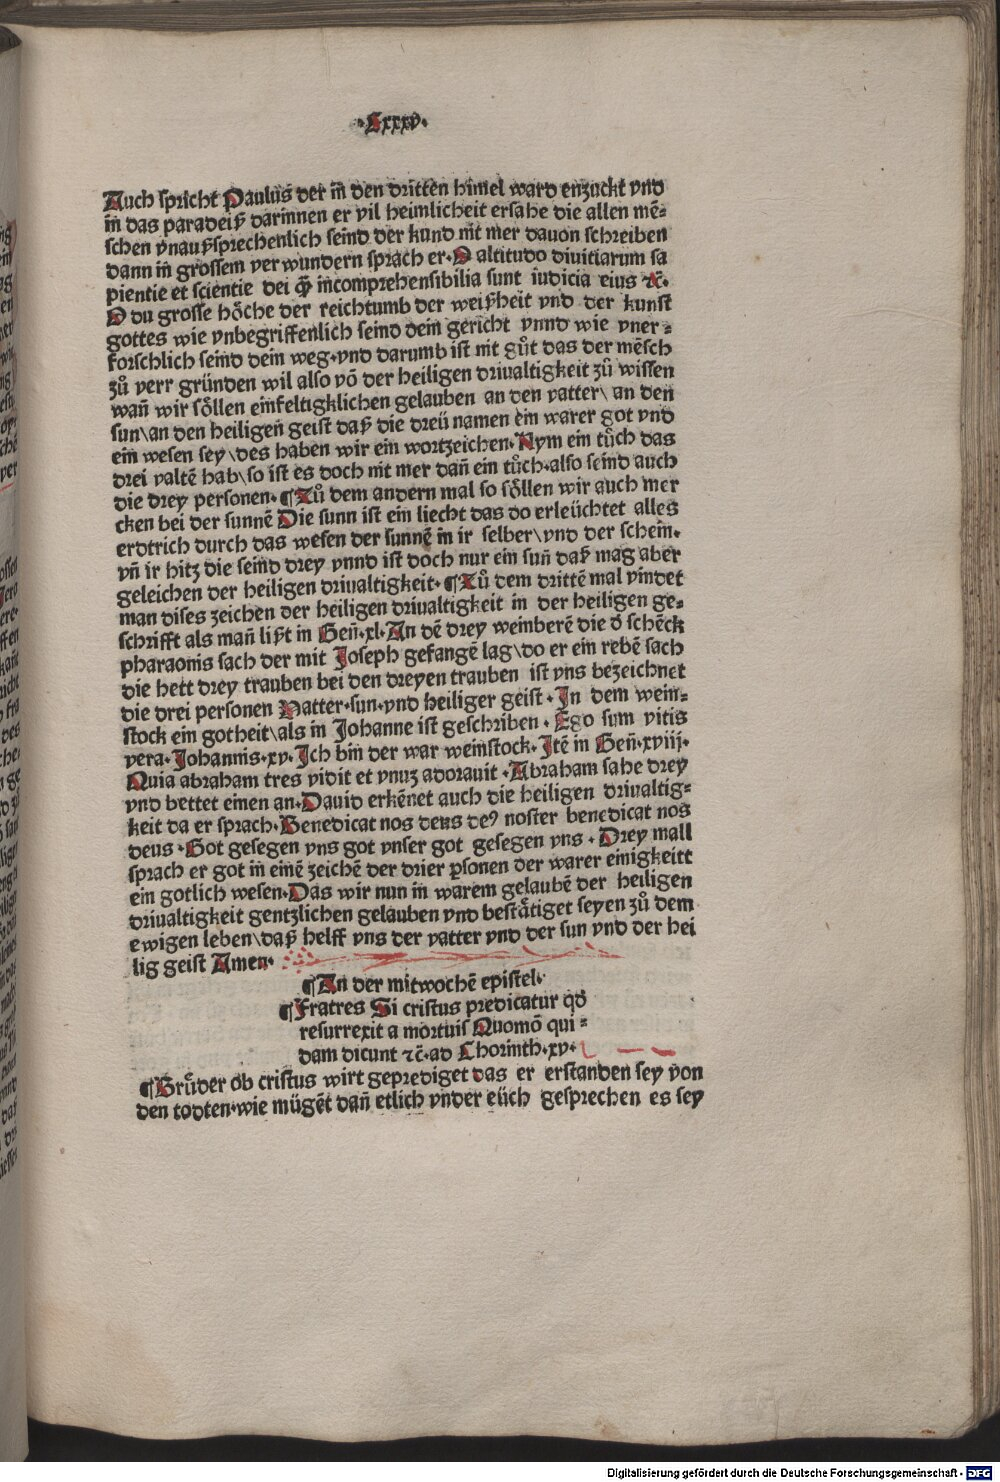 ·Lxxxv·
Auch spricht Paulus der in̄ den dritten himel ward enzuckt vnd
in̄ das paradeiß darinnen er vil heimlicheit ersahe die allen mē-
schen vnaußsprechenlich seind der kund nit mer dauon schreiben
dann in̄ grossem verwundern sprach er·O altitudo diuitiarum sa
pientie et scientie dei q̄ȝ incomprehensibilia sunt iudicia eius ⁊c̄·
O du grosse höche der reichtumb der weißheit vnd der kunst
gottes wie vnbegriffenlich seind dein gericht vnnd wie vner-
forschlich seind dein weg·vnd darumb ist nit gůt das der mēsch
zů verr gründen wil also vō der heiligen driualtigkeit zů wissen
wan̄ wir söllen einfeltigklichen gelauben an den vatter\ an den
sun\an den heiligen̄ geist daß die dreü namen ein warer got vnd
ein wesen sey\des haben wir ein wortzeichen·Nym ein tůch das
drei valtē hab\so ist es doch nit mer dan̄ ein tůch·also seind auch
die drey personen·¶Zů dem andern mal so söllen wir auch mer
cken bei der sunnē Die sunn ist ein liecht das do erleüchtet alles
erdtrich durch das wesen der sunnē in ir selber\vnd der schein·
vn̄ ir hitz die seind drey vnnd ist doch nur ein sun̄ daß mag aber
geleichen der heiligen driualtigkeit·¶Zů dem drittē mal vindet
man dises zeichen der heiligen driualtigkeit in der heiligen ge-
schrifft als man̄ lißt in Gen̄·xl·An dē drey weinberē die d̄ schēck
pharaonis sach der mit Joseph gefangē lag\do er ein rebē sach
die hett drey trauben bei den dreyen trauben ist vns bezeichnet
die drei personen Vatter·sun·vnd heiliger geist·In dem wein-
stock ein gotheit\als in Johanne ist geschriben·Ego sum vitis
vera·Johannis·xv·Ich bin der war weinstock·Itē in Gen̄·xviij·
Quia abraham tres vidit et vnuȝ adorauit·Abraham sahe drey
vnd bettet einen an·Dauid erkēnet auch die heiligen driualtig-
keit da er sprach·Benedicat nos deus deꝰ noster benedicat nos
deus·Got gesegen vns got vnser got gesegen vns·Drey mall
sprach er got in einē zeichē der drier ꝑsonen der warer einigkeitt
ein gotlich wesen·Das wir nun in warem gelaubē der heiligen
driualtigkeit gentzlichen gelauben vnd bestätiget seyen zů dem
ewigen leben\daß helff vns der vatter vnd der sun vnd der hei
lig geist Amen·
¶An der mitwochē epistel·
¶Fratres Si cristus predicatur qd̄
resurrexit a mortuis Quomō qui-
dam dicunt ⁊c̄·ad Chorinth·xv·
¶Brůder ob cristus wirt geprediget das er erstanden sey von
den todten·wie mügēt dan̄ etlich vnder eüch gesprechen es sey
Digitalisierung gefördert durch die Deutsche Forschungsgemeinschaft - DFG